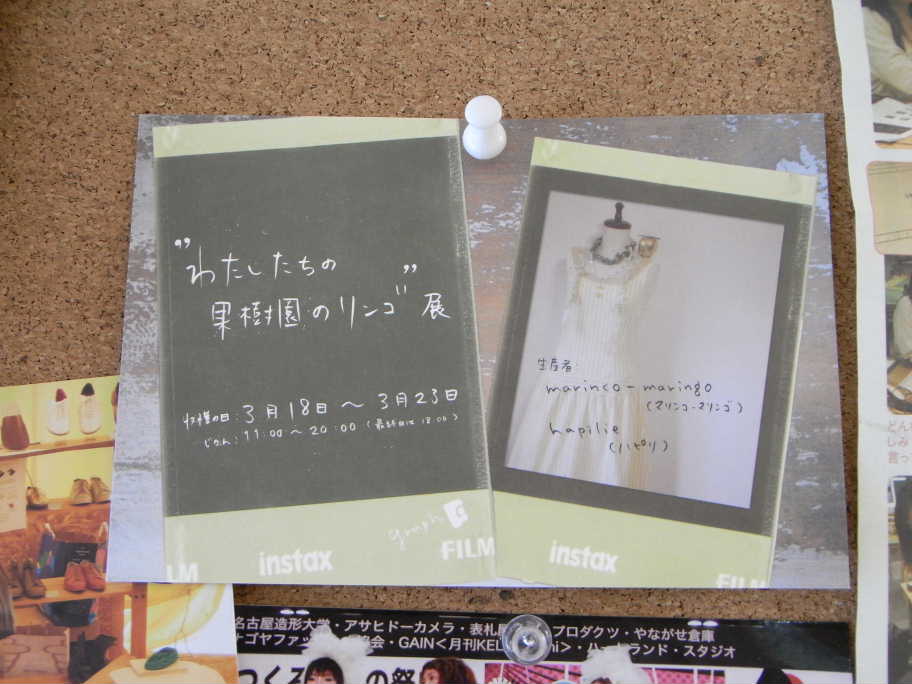 "わたしたちの
果樹園のリンゴ"展
収穫の日:3月18日~3月23日
じかん:11:00~20:00(最終日は18:00)
graph
instax
FILM
LM
生産者:
marinco-maringo
(マリンコ-マリンゴ)
hapilie
(ハピリ)
instax
FILM
名古屋造形大学・アサヒドーカメラ・表札
プロダクツ・やながせ倉庫
ナゴヤファッ
会・GAIN<月刊KEL
ni>・ハートランド・スタジオ
つくる
の祭
どんな
しみ
言っ